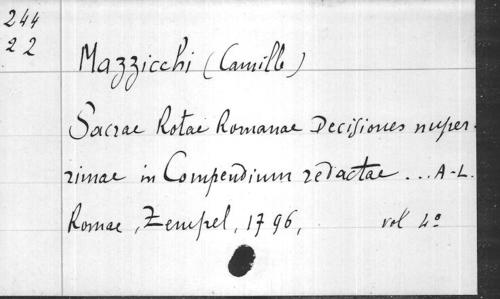 244
22
Mazzicchi (Camillo)
Sacrae Rotae Romanae Decisiones nuper-
rimae in Compendium redactae ... A-L.
Romae, Zempel, 1796, vol 4º